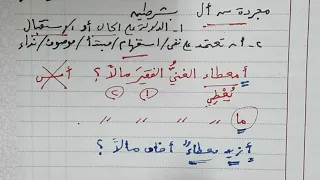 مجردة من أل    شرطية
١- الدلالة على الحال أو الاستقبال
٢- أن تعتمد على نفى / استفهام / مبتدأ / موصوف / نداء
أمعطاء الغنيُّ الفقيرَ مالاً ؟ أمس
يُعْطِي ① ②
ما " " " "
أزيد معطاءٌ أخاه مالاً ؟